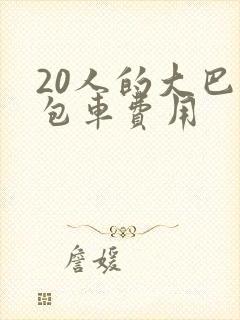 20人的大巴
包車費用
詹媛